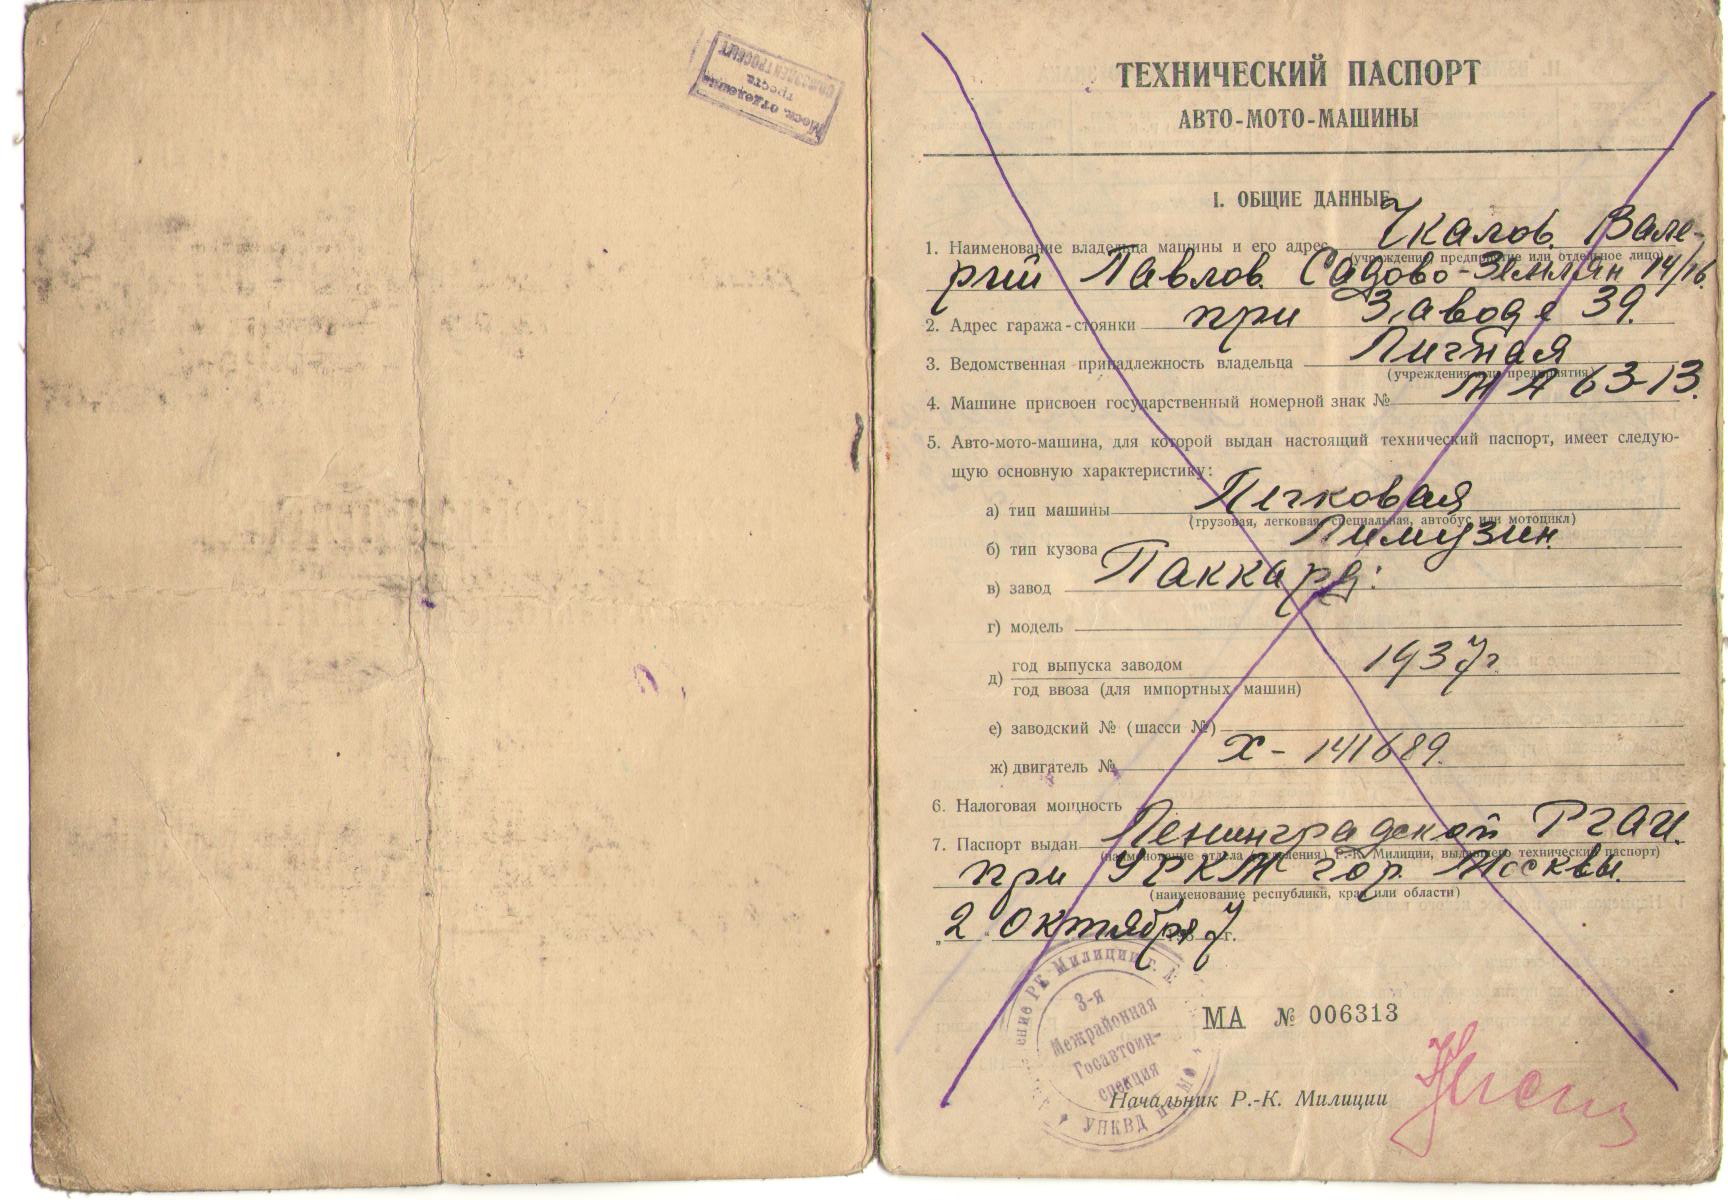 Моск. отделение
треста
СОЮЗЭЛЕКТРОСБЫТ
ТЕХНИЧЕСКИЙ ПАСПОРТ
АВТО-МОТО-МАШИНЫ
I. ОБЩИЕ ДАННЫЕ
1. Наименование владельца машины и его адрес Чкалов Вале-
(учреждение предприятие или отдельное лицо)
рий Павлов. Садово-Землян 14/16.
2. Адрес гаража-стоянки при Заводе 39.
3. Ведомственная принадлежность владельца Личная
(учреждения или предприятия)
4. Машине присвоен государственный номерной знак № МА 63-13.
5. Авто-мото-машина, для которой выдан настоящий технический паспорт, имеет следую-
щую основную характеристику:
а) тип машины Легковая
(грузовая, легковая, специальная, автобус или мотоцикл)
б) тип кузова Лимузин.
в) завод Паккард:
г) модель
д) год выпуска заводом 1937г
год ввоза (для импортных машин)
е) заводский № (шасси №)
ж) двигатель № Х-141689.
6. Налоговая мощность
7. Паспорт выдан Ленинградской РГАИ.
(наименование отдела (отделения) Р.-К. Милиции, выдавшего технический паспорт)
при УРКМ гор. Москвы.
(наименование республики, края или области)
„2" Октября 1937 г.
ение РК Милиции г. М
3-я
Межрайонная
Госавтоин-
спекция
УНКВД по МО
МА № 006313
Начальник Р.-К. Милиции